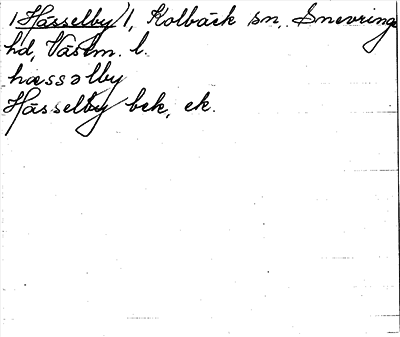 /Hässelby/1, Kolbäck sn, Snevringe
hd, Västm. l.
hæssəlby
Hässelby bek, ek.